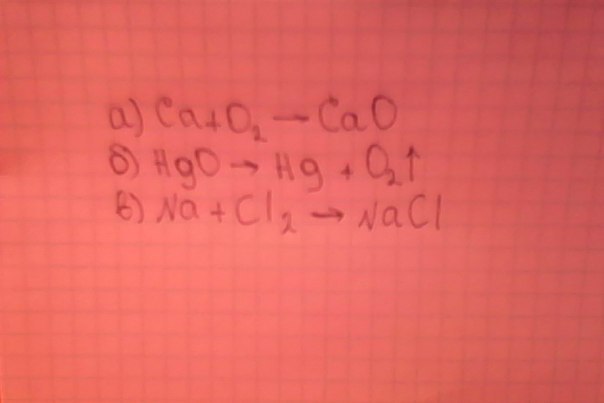 а) Ca+O₂ — CaO
б) HgO → Hg + O₂↑
в) Na + Cl₂ → NaCl